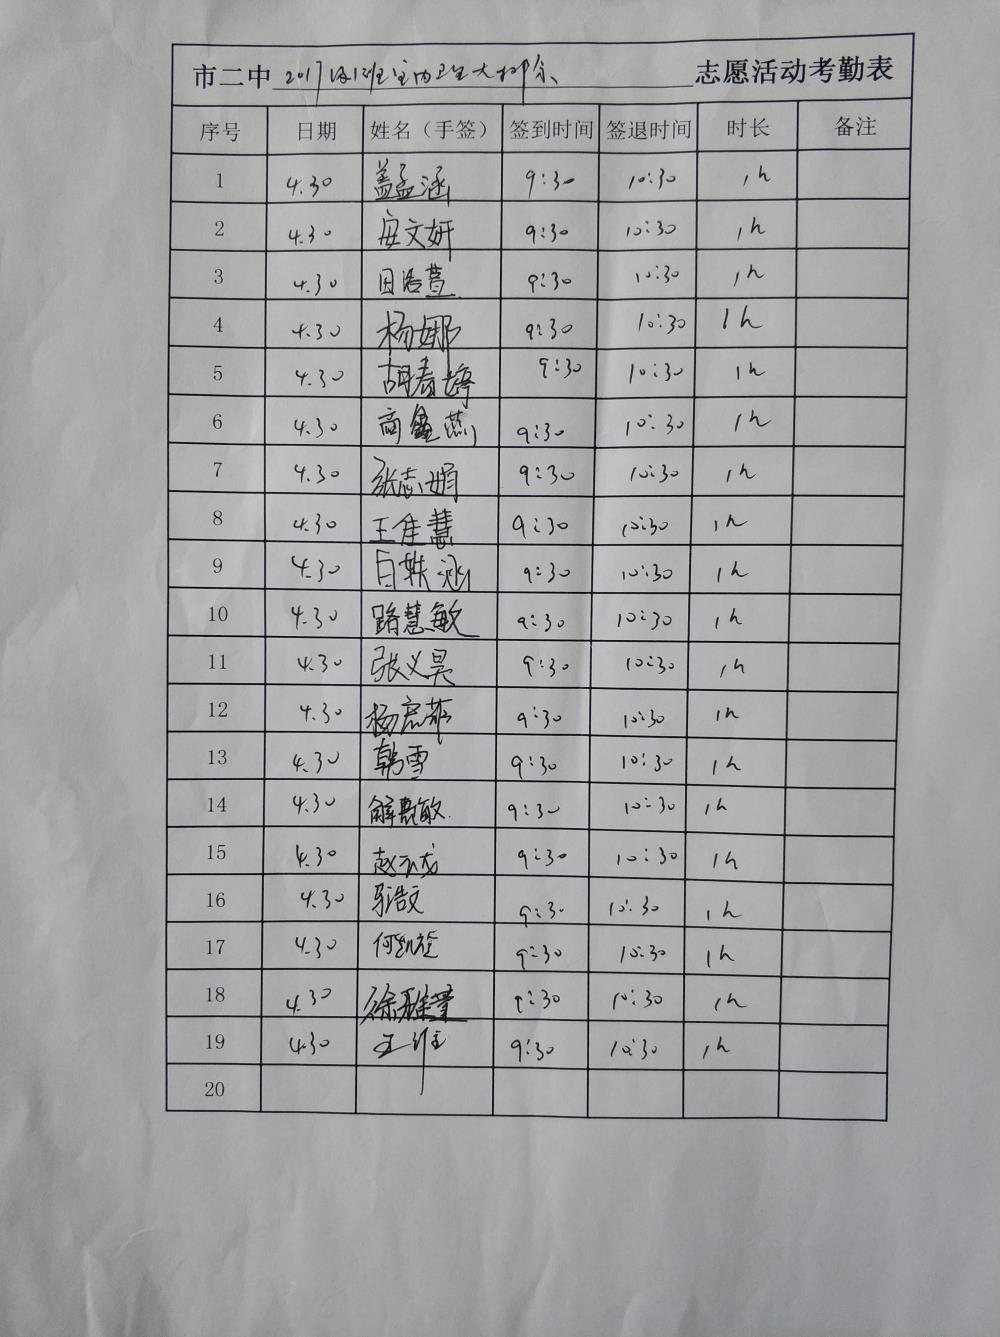 市二中 2017级12班室内卫生大扫除 志愿活动考勤表
序号 日期 姓名（手签） 签到时间 签退时间 时长 备注
1 4.30 盖孟涵 9:30 10:30 1h
2 4.30 安文妍 9:30 10:30 1h
3 4.30 田浩萱 9:30 10:30 1h
4 4.30 杨娜 9:30 10:30 1h
5 4.30 胡春婷 9:30 10:30 1h
6 4.30 商鑫燕 9:30 10:30 1h
7 4.30 张志娟 9:30 10:30 1h
8 4.30 王佳慧 9:30 10:30 1h
9 4.30 白轶涵 9:30 10:30 1h
10 4.30 路慧敏 9:30 10:30 1h
11 4.30 张义昊 9:30 10:30 1h
12 4.30 9:30 10:30 1h
13 4.30 韩雪 9:30 10:30 1h
14 4.30 9:30 10:30 1h
15 4.30 赵云龙 9:30 10:30 1h
16 4.30 9:30 10:30 1h
17 4.30 何凯旋 9:30 10:30 1h
18 4.30 徐雅童 9:30 10:30 1h
19 4.30 王维 9:30 10:30 1h
20